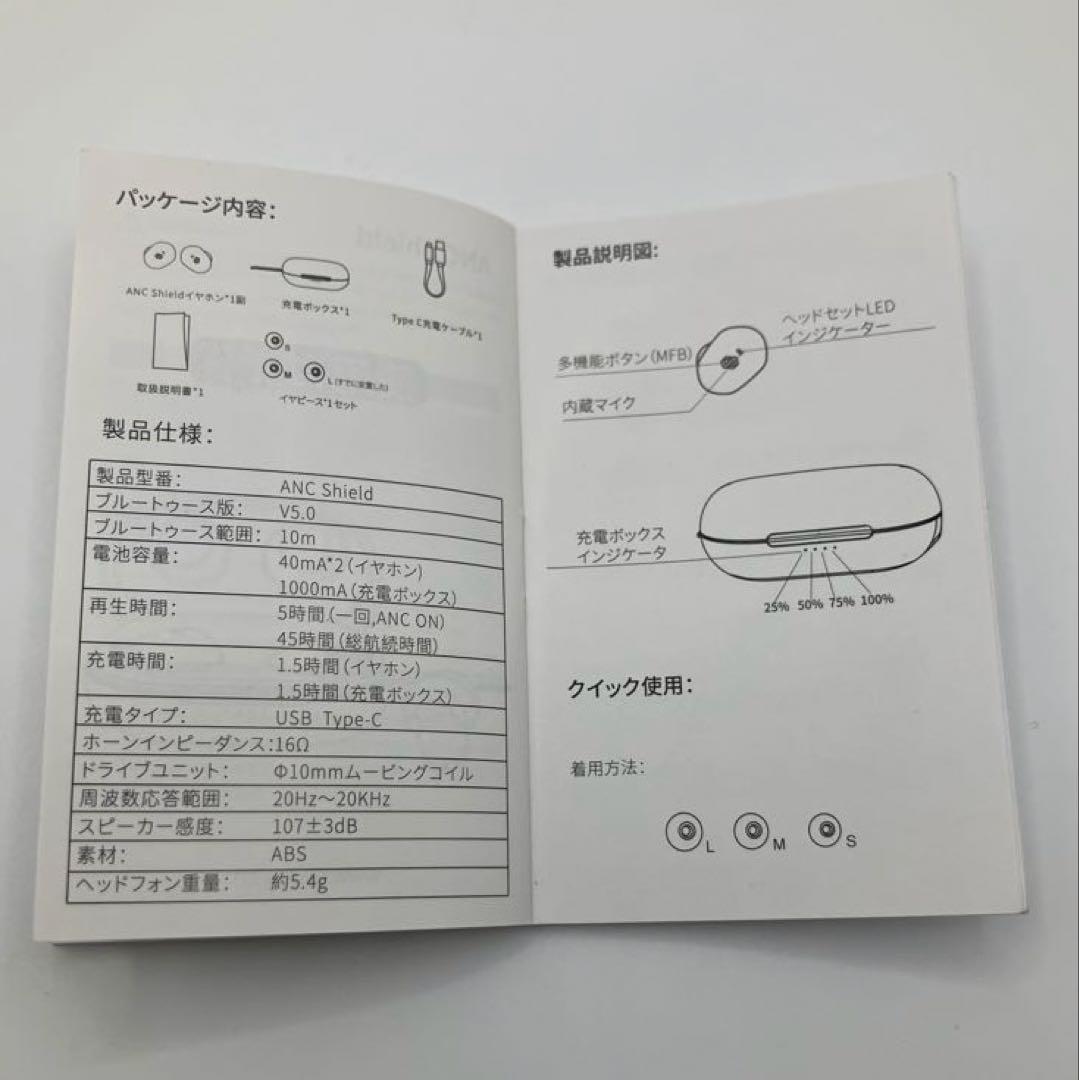 パッケージ内容：
ANC Shieldイヤホン*1副
充電ボックス*1
Type C充電ケーブル*1
取扱説明書*1
S
M
L (すでに安置した)
イヤピース*1セット
製品仕様：
製品型番： ANC Shield
ブルートゥース版： V5.0
ブルートゥース範囲： 10m
電池容量： 40mA*2（イヤホン）
1000mA（充電ボックス）
再生時間： 5時間（一回,ANC ON）
45時間（総航続時間）
充電時間： 1.5時間（イヤホン）
1.5時間（充電ボックス）
充電タイプ： USB Type-C
ホーンインピーダンス：16Ω
ドライブユニット： Φ10mmムービングコイル
周波数応答範囲： 20Hz～20KHz
スピーカー感度： 107±3dB
素材： ABS
ヘッドフォン重量： 約5.4g
製品説明図:
ヘッドセットLED
インジケーター
多機能ボタン（MFB）
内蔵マイク
充電ボックス
インジケータ
25% 50% 75% 100%
クイック使用：
着用方法：
L M S